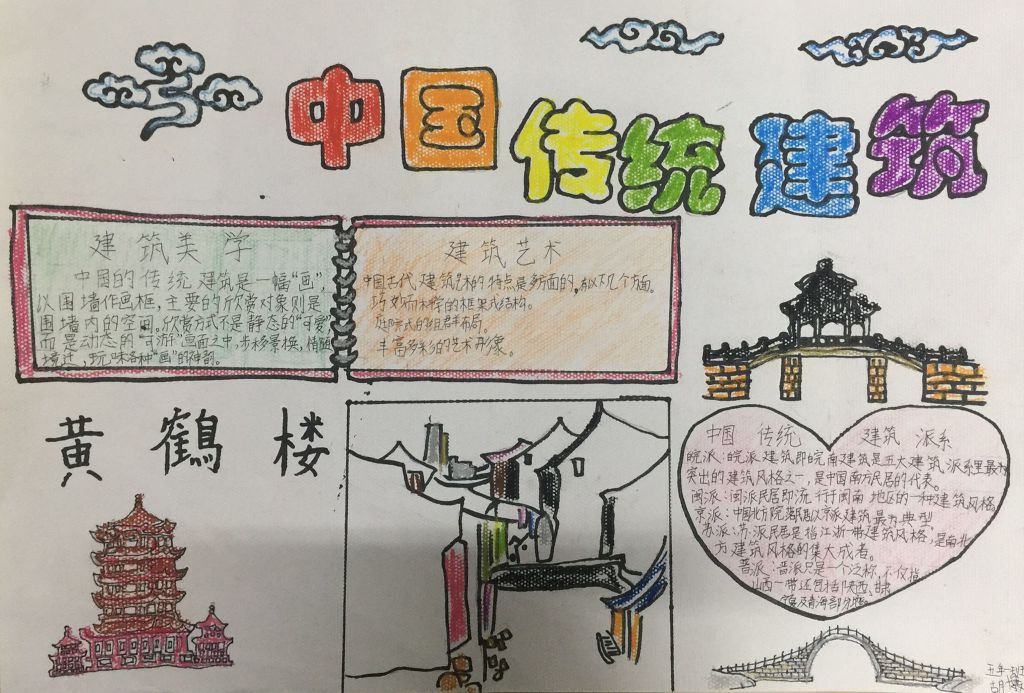 中国传统建筑
建筑美学
中国的传统建筑是一幅“画”,
以围墙作画框,主要的欣赏对象则是
围墙内的空间。欣赏方式不是静态的“可爱”
而是动态的“可游”画面之中,步移景换,情随
境迁,玩味各种“画”的神韵。
建筑艺术
中国古代建筑艺术的特点是多方面的,有以下几个方面。
巧妙而科学的框架式结构。
庭院式的组群布局。
丰富多彩的艺术形象。
黄鹤楼
中国传统建筑派系
皖派:皖派建筑即皖南建筑是五大建筑派系里最
突出的建筑风格之一,是中国南方民居的代表。
闽派:闽派民居即流行于闽南地区的一种建筑风格
京派:中国北方院落民居以京派建筑最为典型
苏派:苏派民居是指江浙一带建筑风格,是南北
方建筑风格的集大成者。
晋派:晋派只是一个泛称,不仅指
山西一带还包括陕西、甘肃
宁夏及青海部分地区。